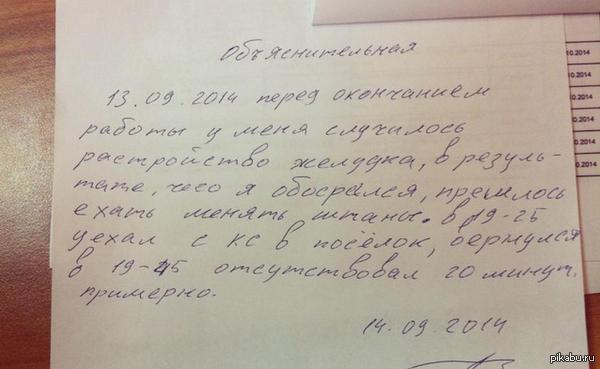 Объяснительная
13.09.2014 перед окончанием
работы у меня случилось
растройство желудка, в резуль-
тате, чего я обосрался, пришлось
ехать менять штаны. в 19-25
уехал с КС в посёлок, вернулся
в 19-45 отсутствовал 20 минут,
примерно.
14.09.2014
10.2014
.2014
.2014
.2014
.2014
pikabu.ru